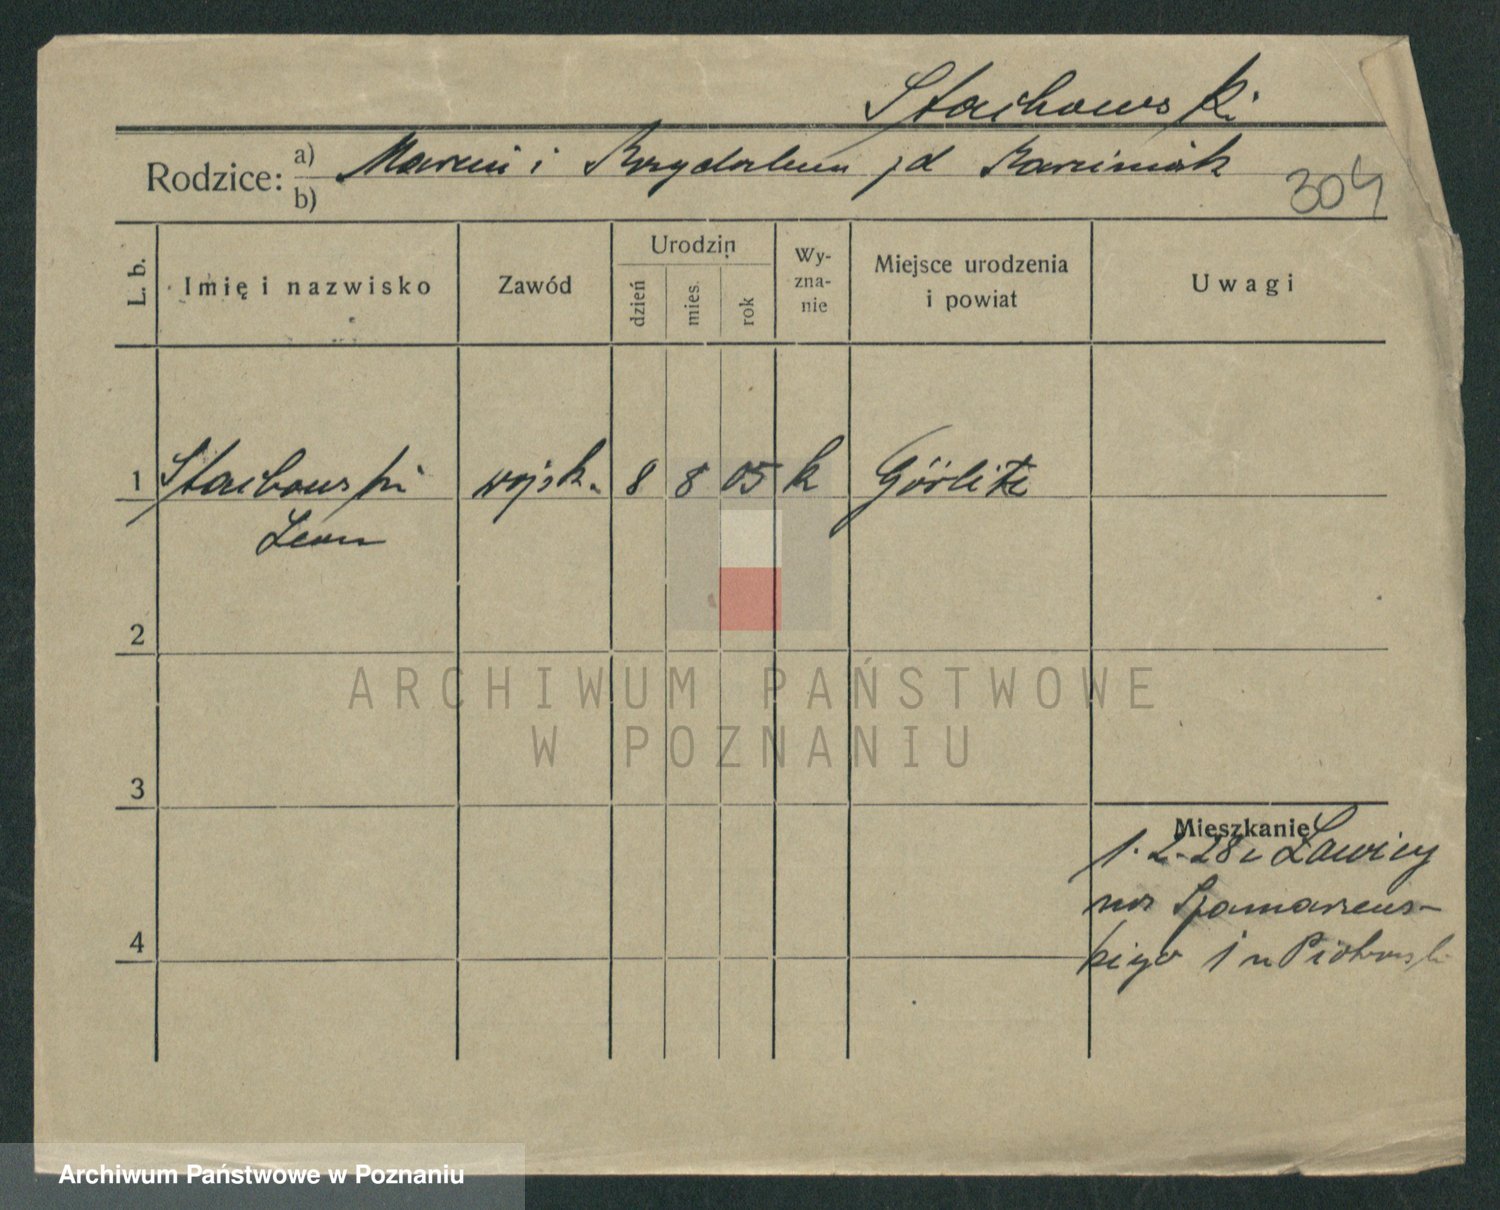 Stachowski
Rodzice: a) Marcin i
b)
304
L. b.
Imię i nazwisko
Zawód
Urodzin
dzień
mies.
rok
Wy-
zna-
nie
Miejsce urodzenia
i powiat
Uwagi
1 Stachowski wojsk. 8 8 05 k Görlitz
Leon
2
3
4
Mieszkanie
1. 2. 28 z Ławicy
kiego 1 u Piotrowsk
ARCHIWUM PAŃSTWOWE
W POZNANIU
Archiwum Państwowe w Poznaniu